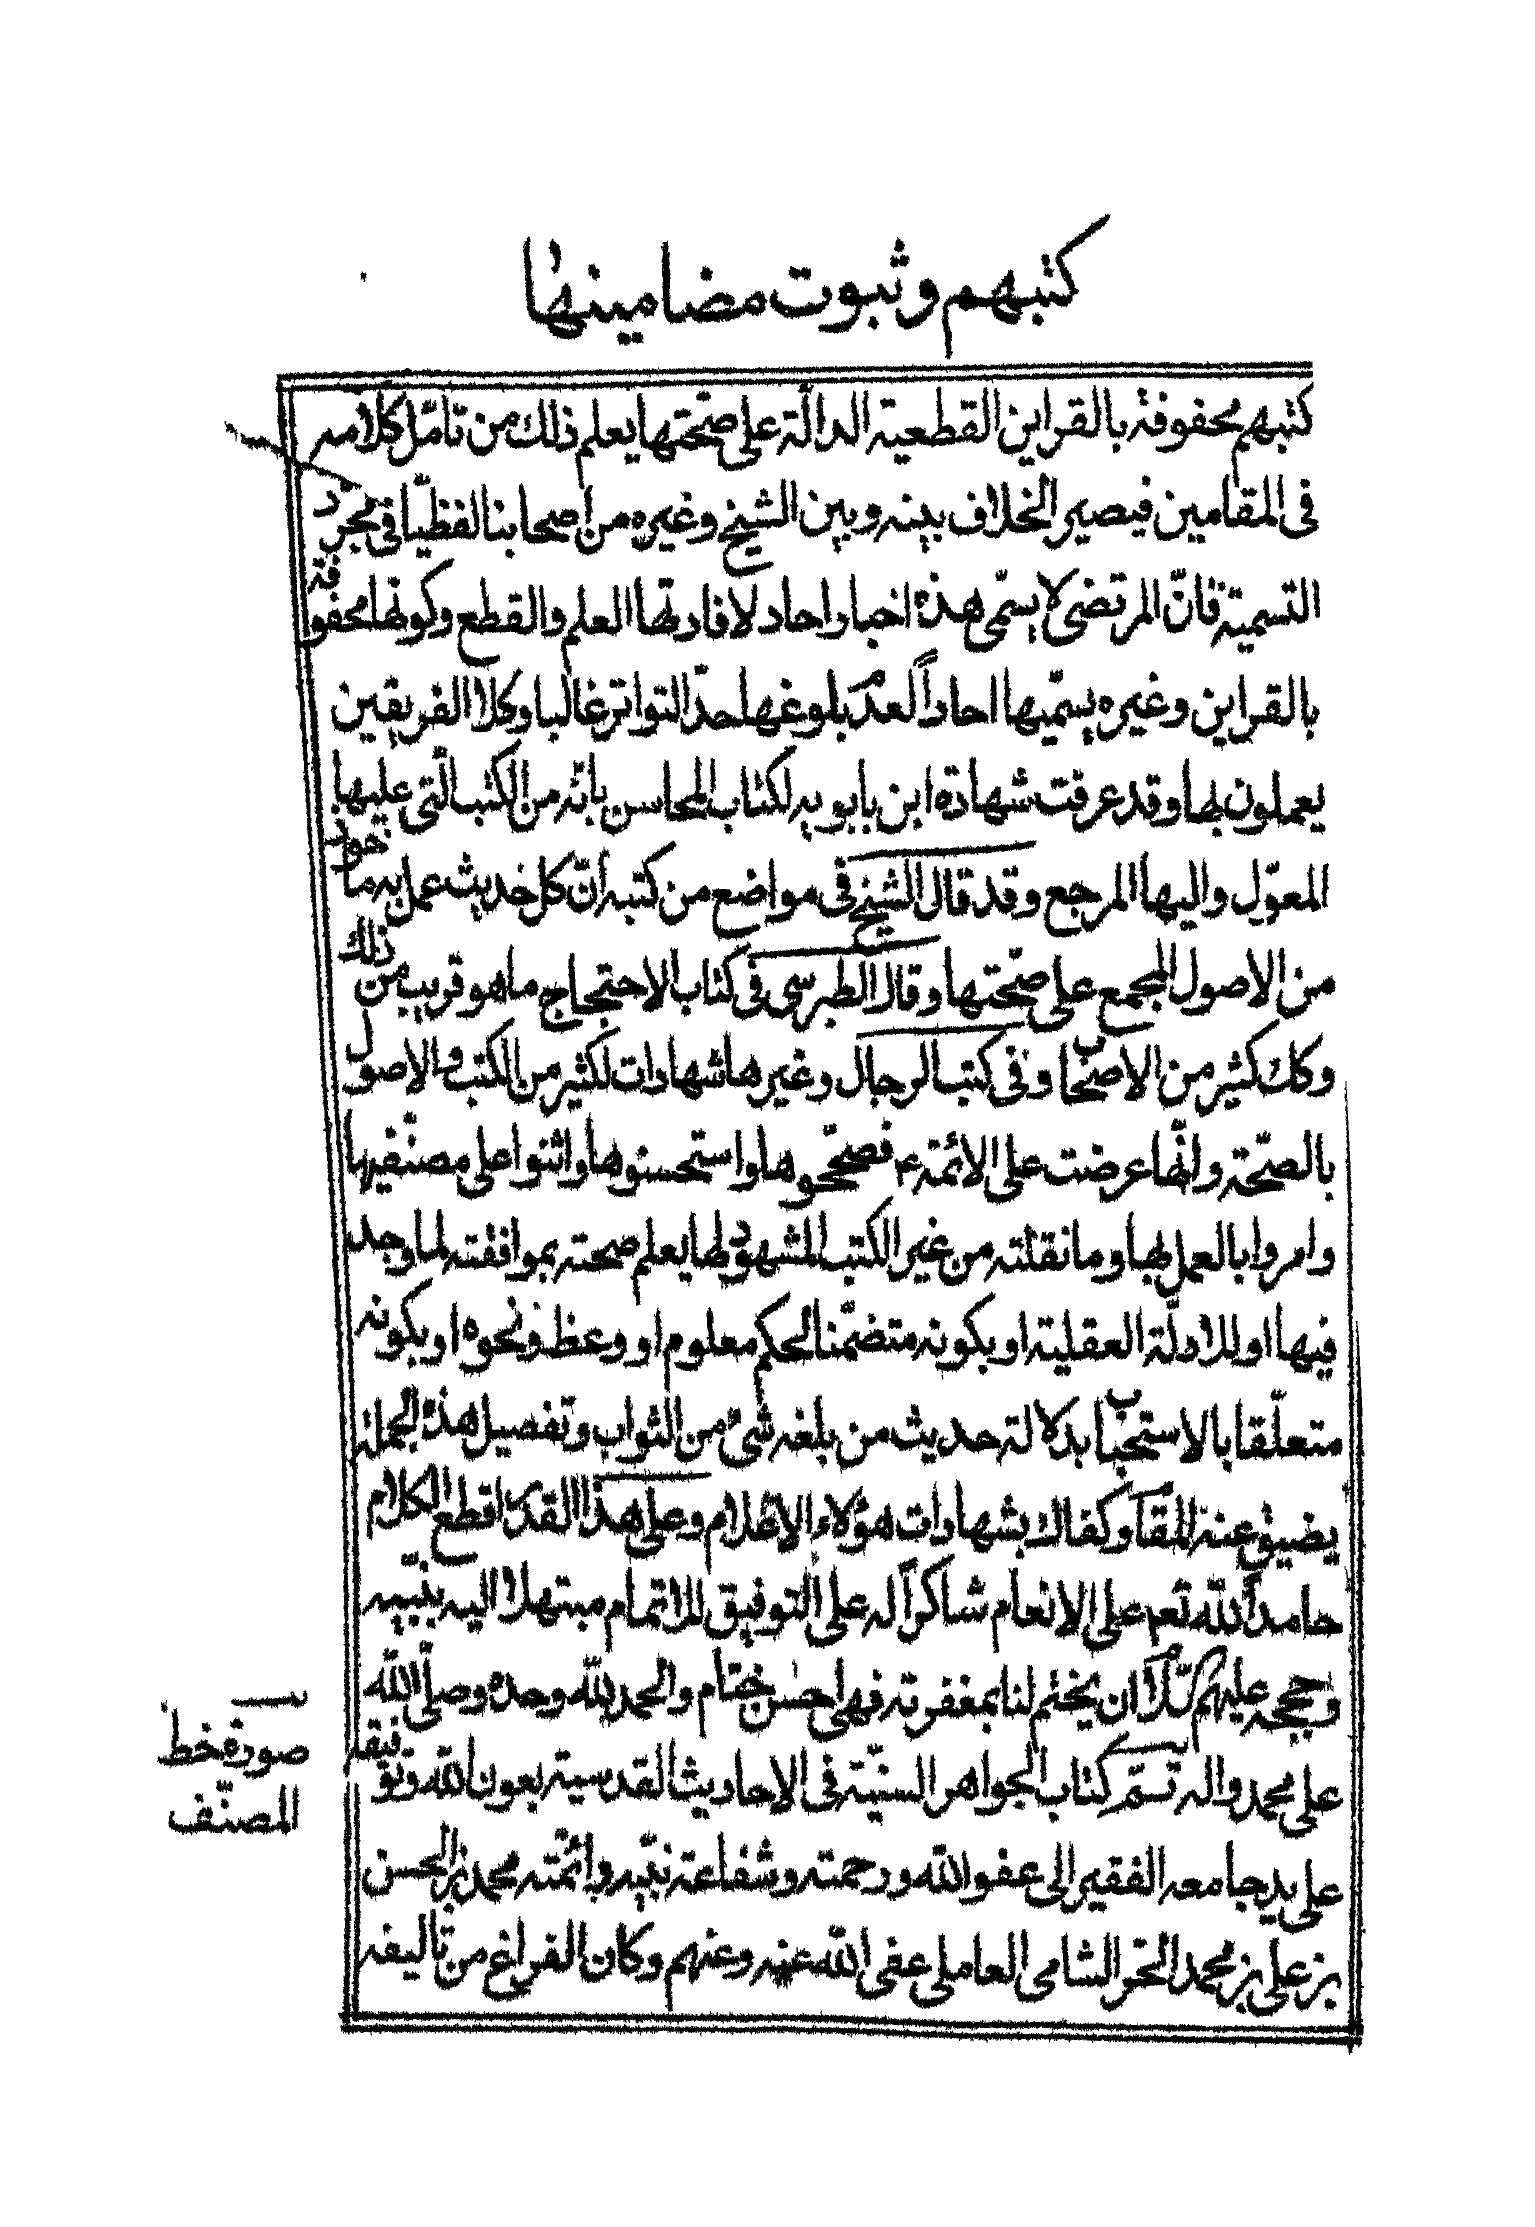 كتبهم وثبوت مضامينها
كتبهم محفوفة بالقراين القطعية الدالّة على صحّتها يعلم ذلك من تامّل كلامه
فى المقامين فيصير الخلاف بينه وبين الشيخ وغيره من اصحابنا لفظيّا فى مجرّد
التسمية فانّ المرتضى لا يسمّى هذه اخبار احاد لافادتها العلم والقطع وكونها محفوفة
بالقراين وغيره يسمّيها احاداً لعدم بلوغها حدّ التواتر غالبا وكلا الفريقين
يعملون بها وقد عرفت شهادة ابن بابويه لكتاب المحاسن بانّه من الكتب الّتى عليها
المعوّل واليها المرجع وقد قال الشيخ فى مواضع من كتبه انّ كل حديث عمل به ماخوذ
من الاصول المجمع على صحّتها وقال الطبرسى فى كتاب الاحتجاج ما هو قريب من ذلك
وكك كثير من الاصحاب وفى كتب الرجال وغيرها شهادات لكثير من الكتب والاصول
بالصحّة وانّها عرضت على الائمّة ع فصحّحوها واستحسنوها واثنوا على مصنّفيها
وامروا بالعمل بها وما نقلته من غير الكتب المشهود لها يعلم صحته بموافقته لما وجد
فيها او للادلّة العقلية او بكونه متضمّنا لحكم معلوم او وعظ ونحوه او بكونه
متعلّقا بالاستحباب بدلالة حديث من بلغه شىء من الثواب وتفصيل هذه الجملة
يضيق عنه المقام وكفاك بشهادات هؤلاء الاعلام وعلى هذا القدر اقطع الكلام
حامداً لله تعم على الانعام شاكراً له على التوفيق للاتمام مبتهلا اليه بنبيّه
وحججه عليهم السّلام ان يختم لنا بمغفرته فهى احسن ختام والحمد لله وحده وصلّى الله
على محمد واله تسمّ كتاب الجواهر السنيّة فى الاحاديث القدسية بعون الله وتوفيقه
على يد جامعه الفقير الى عفو الله ورحمته وشفاعة نبيّه وائمّته محمد بن الحسن
بن على بن محمد الحر الشامى العاملى عفى الله عنه وعنهم وكان الفراغ من تاليفه
صورة خط
المصنّف